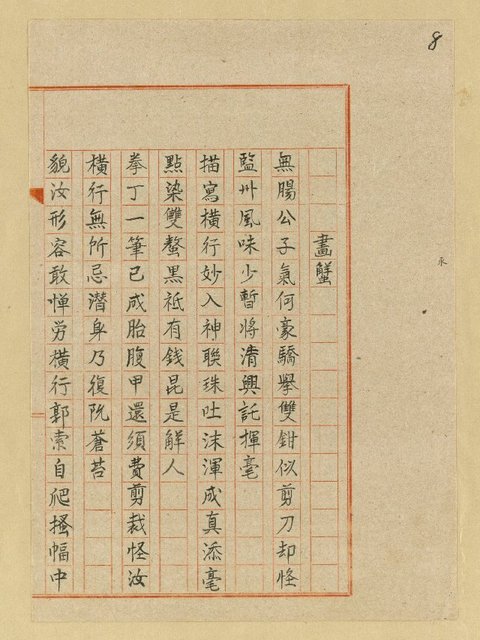 8
畫蟹
無腸公子氣何豪驕擧雙鉗似剪刀却怪
監州風味少暫将清興託揮毫
描寫橫行妙入神聯珠吐沫渾成真添毫
點染雙螯黑祗有錢昆是解人
拳丁一筆已成胎腹甲還須費剪裁怪汝
橫行無所忌潛身乃復阮蒼苔
貌汝形容敢惮労橫行郭索自爬搔幅中